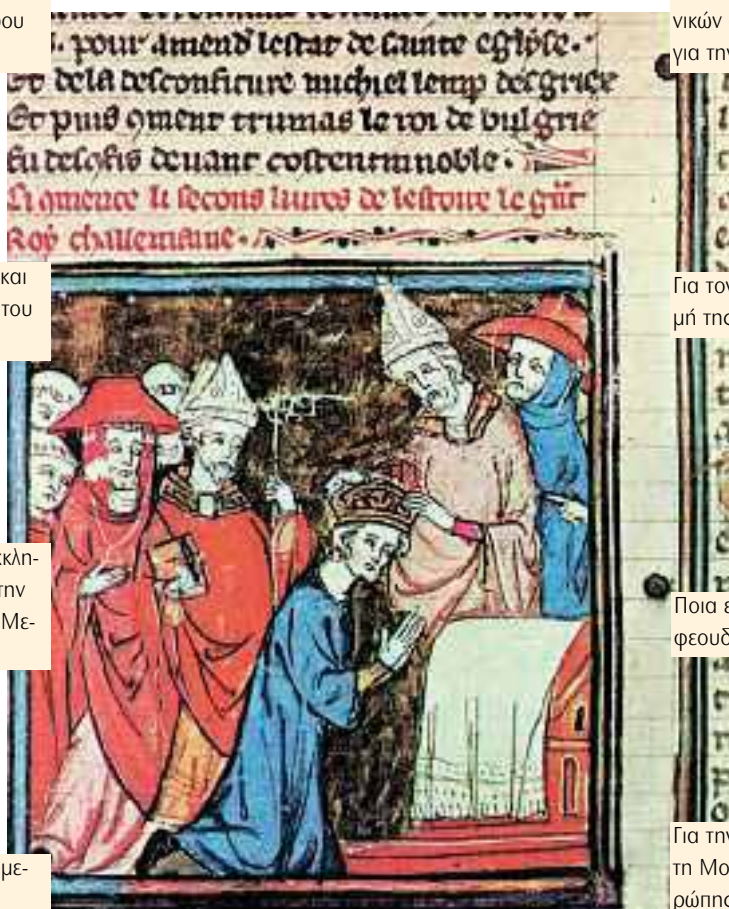 ου
νικών
για την
. pour amend lestat de sainte eglyse.
Et dela desconfiture michiel lemp des grice
Et puis gment trumas le roi de bulgrie
fu descofis deuant costentinnoble.
Ci gmence li secons liures de lestoire le gūt
Roy challemaine.
και
του
Για τον
μή της
κλη-
την
Με-
Ποια ε
φεουδ
με-
Για την
τη Μο
ρώπης